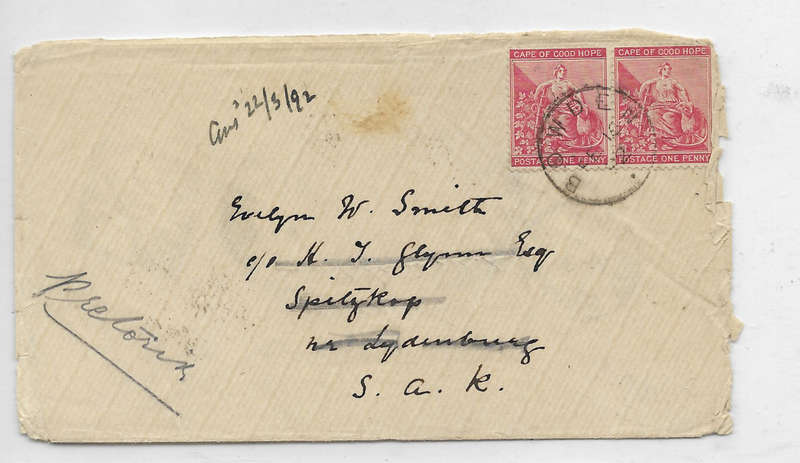 CAPE OF GOOD HOPE CAPE OF GOOD HOPE
POSTAGE ONE PENNY POSTAGE ONE PENNY
Ans 22/3/92
Evelyn W. Smith
c/o H. T. Glynn Esq
Spitzkop
nr Lydenburg
S. A. R.
Pretoria